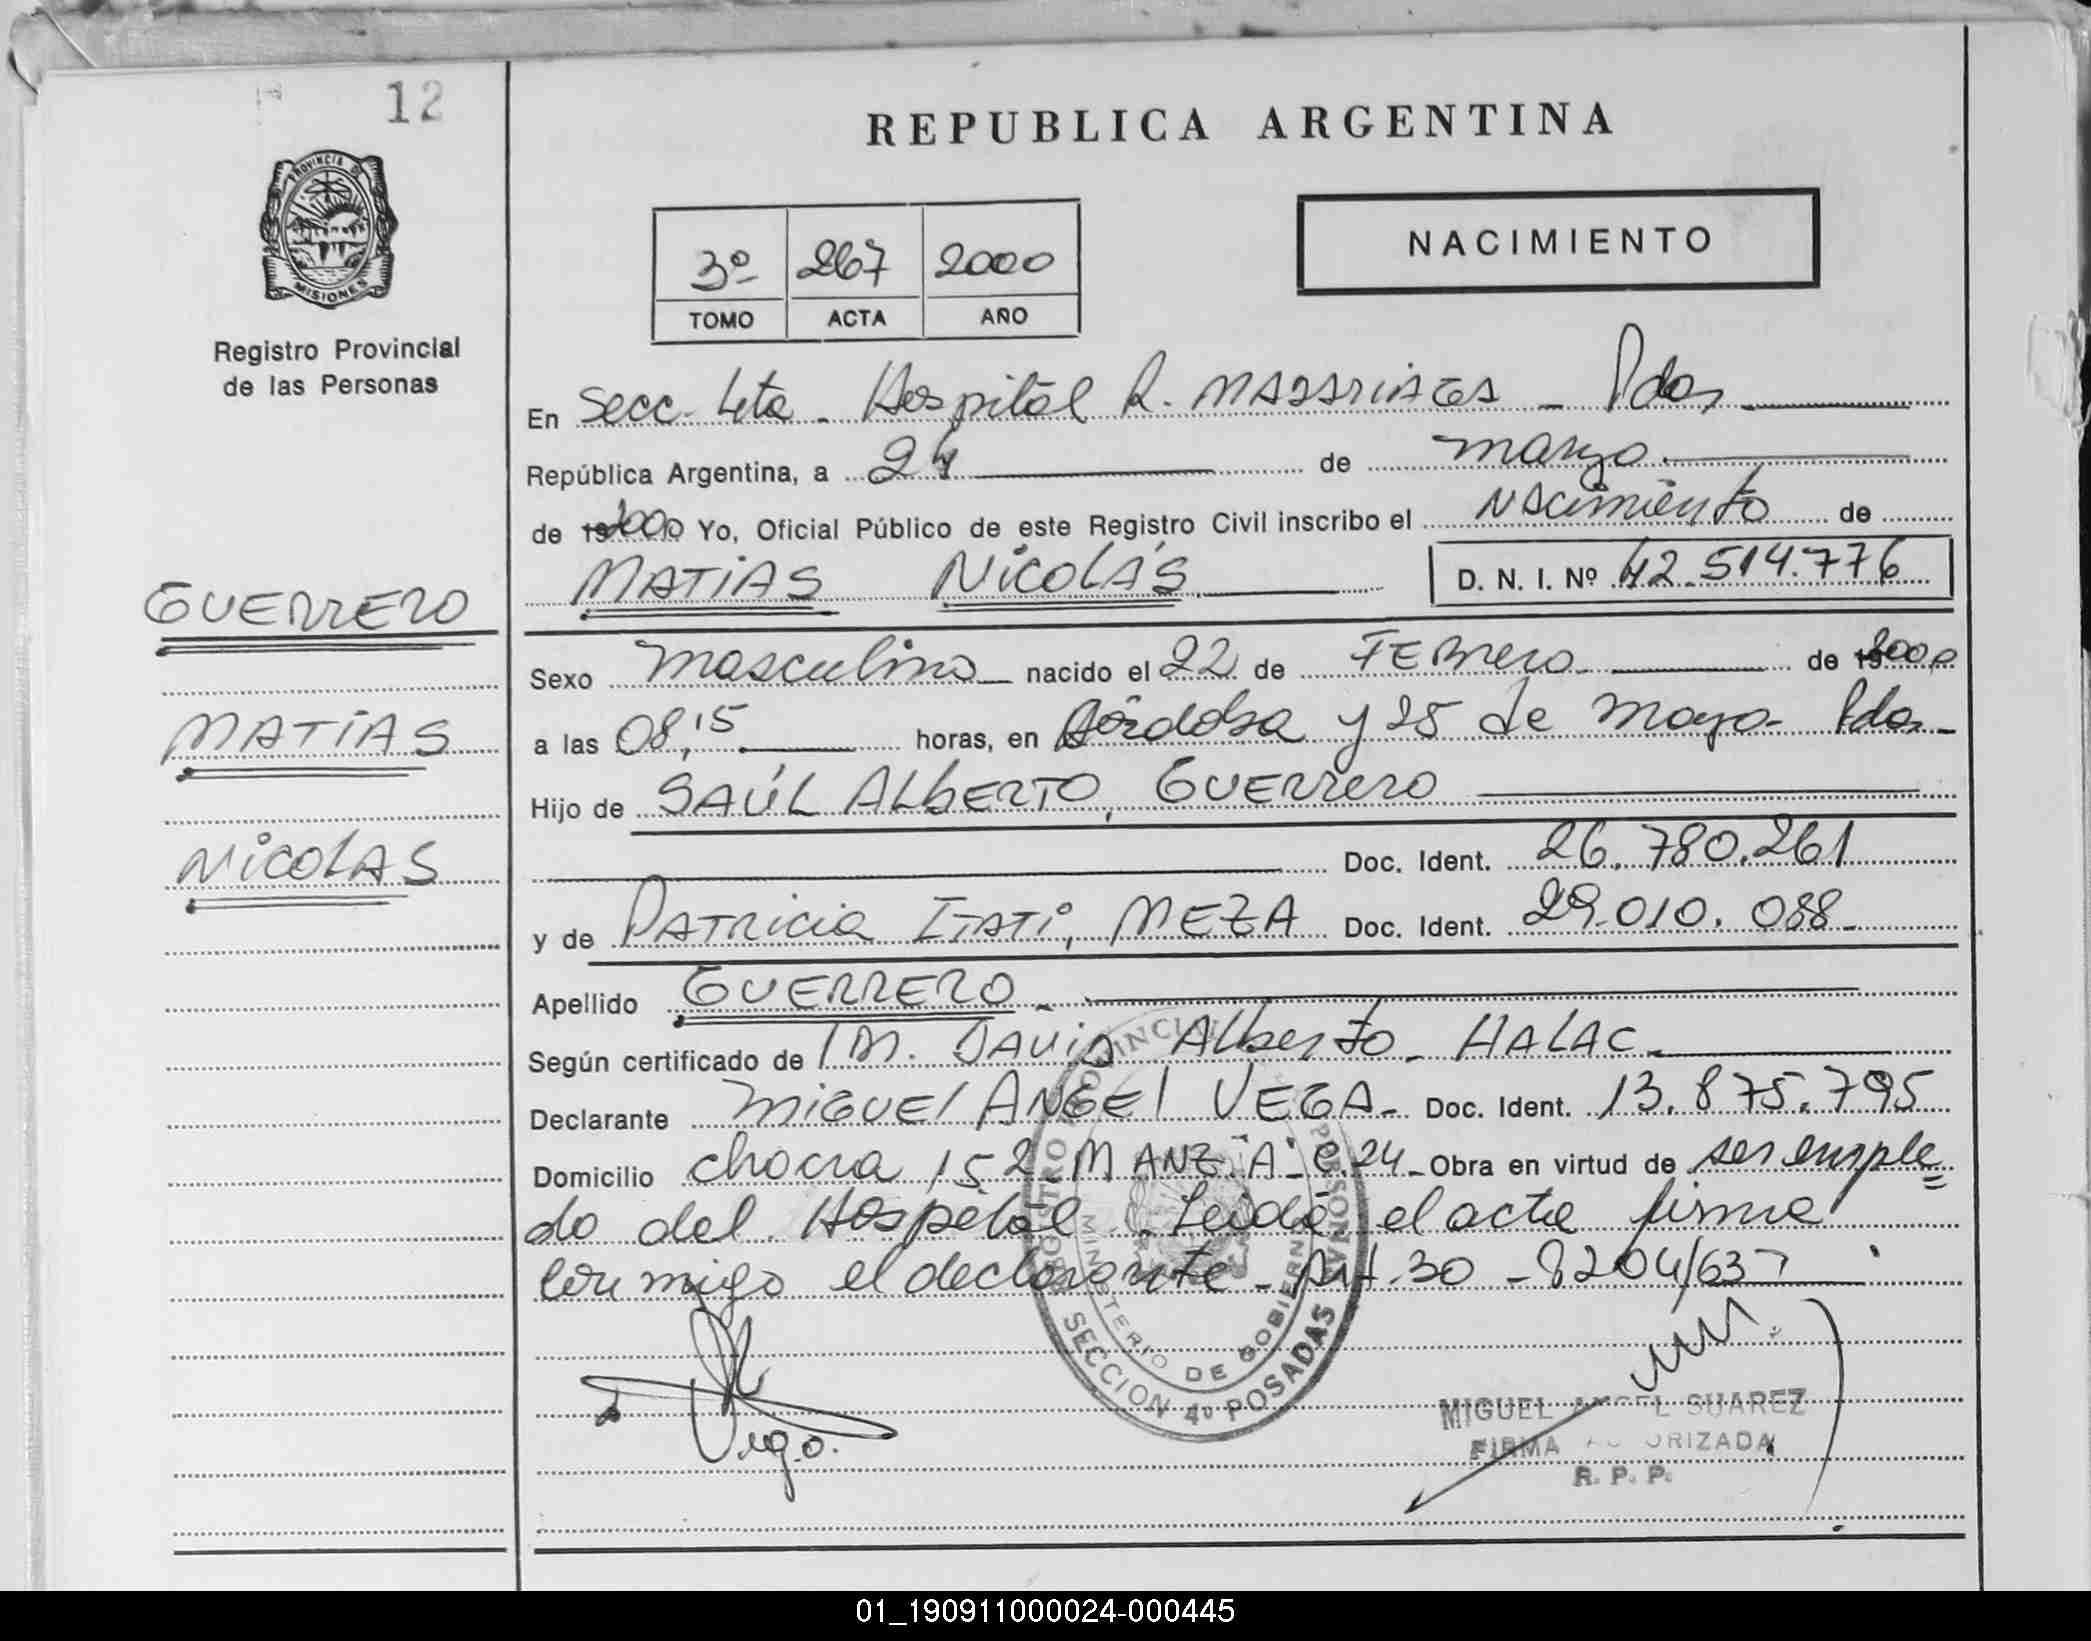 12
PROVINCIA DE
MISIONES
Registro Provincial
de las Personas
GUERRERO
MATIAS
NICOLAS
REPUBLICA ARGENTINA
3º 267 2000
TOMO ACTA AÑO
NACIMIENTO
En Secc. 4ta - Hospital R. MADARIAGA - Pdas -
República Argentina, a 24 de marzo.
de 19 2000 Yo, Oficial Público de este Registro Civil inscribo el Nacimiento de
MATIAS NICOLÁS. D. N. I. Nº 42.514.776
Sexo Masculino nacido el 22 de FEBRERO de 19 2000
a las 08,15 horas, en Córdoba y 25 de Mayo - Pdas -
Hijo de SAÚL ALBERTO, GUERRERO
Doc. Ident. 26.780.261
y de PATRICIA ITATI, MEZA Doc. Ident. 29.010.088 -
Apellido GUERRERO -
Según certificado de DAVID Alberto - HALAC -
Declarante MIGUEL ANGEL VEGA - Doc. Ident. 13.875.795
Domicilio chacra 152 MANZ "A" C.24 - Obra en virtud de ser emple=
do del Hospital. Leída el acta firma
conmigo el declarante - Art. 30 - 8204/63
REGISTRO PROVINCIAL PERSONAS
MINISTERIO DE GOBIERNO
SECCION 4º POSADAS
Vega.
MIGUEL ANGEL SUAREZ
FIRMA AUTORIZADA
R. P. P.
01_190911000024-000445